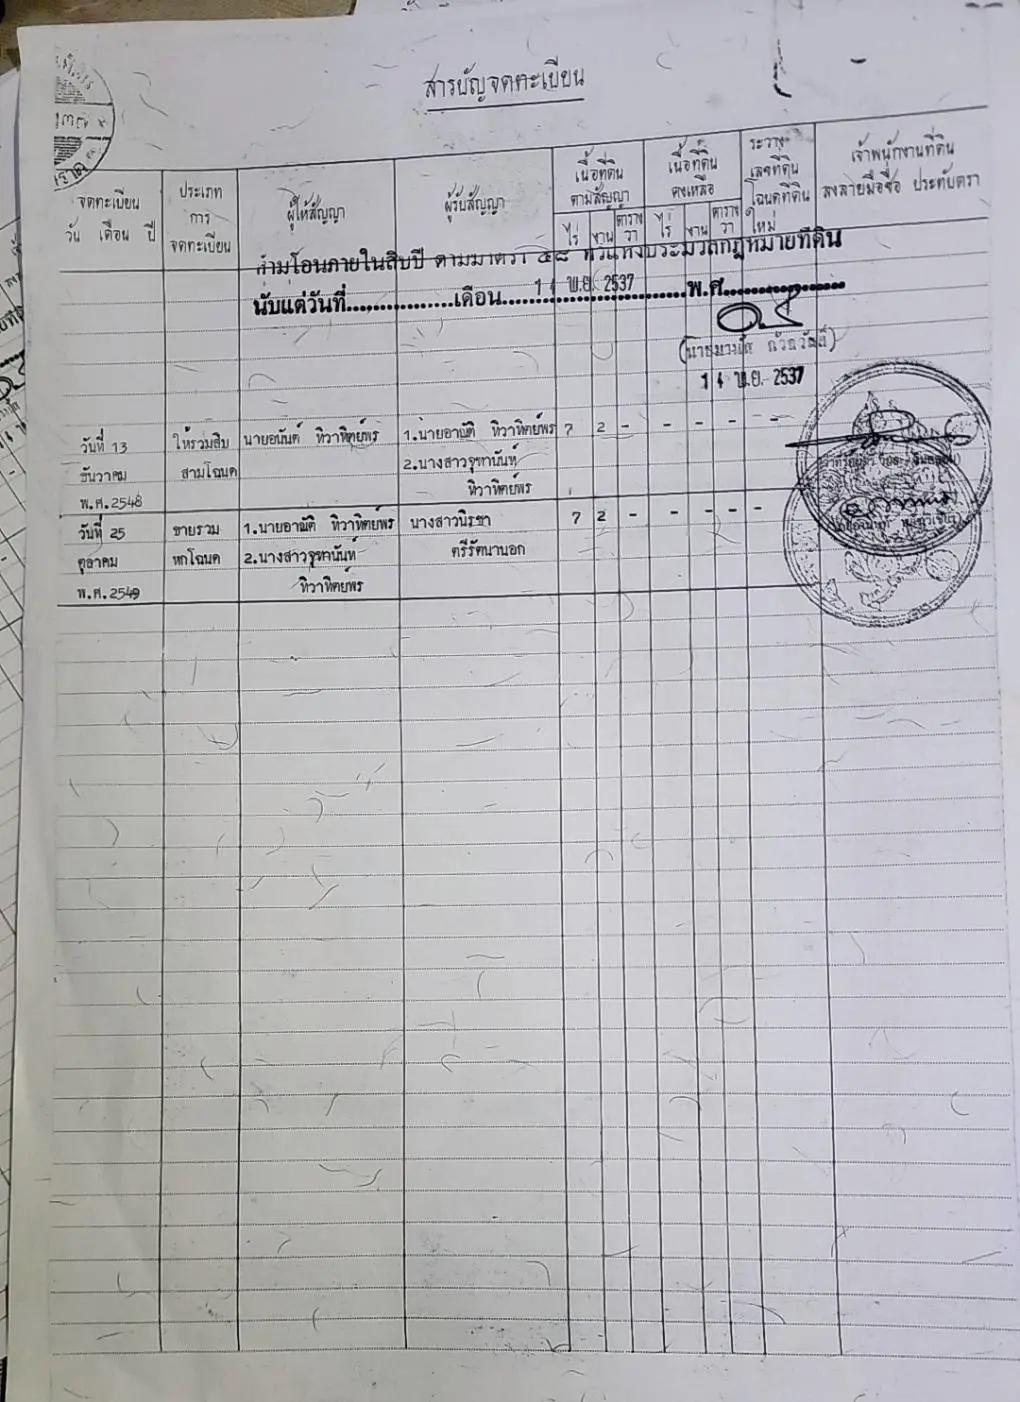 สารบัญจดทะเบียน
จดทะเบียน
วัน เดือน ปี
ประเภท
การ
จดทะเบียน
ผู้ให้สัญญา
ผู้รับสัญญา
เนื้อที่ดิน
ตามสัญญา
ไร่ งาน ตาราง
วา
เนื้อที่ดิน
คงเหลือ
ไร่ งาน ตาราง
วา
ระวาง
เลขที่ดิน
โฉนดที่ดิน
ใหม่
เจ้าพนักงานที่ดิน
ลงลายมือชื่อ ประทับตรา
ห้ามโอนภายในสิบปี ตามมาตรา ๕๘ ทวิแห่งประมวลกฎหมายที่ดิน
นับแต่วันที่..................เดือน..................พ.ศ..................
14 พ.ย. 2537
14 พ.ย. 2537
วันที่ 13 ให้รวมสิบ นายอนันต์ ทิวาทิตย์พร 1.นายอาณัติ ทิวาทิตย์พร 7 2 - - - - -
ธันวาคม สามโฉนด 2.นางสาวจุฑานันท์
พ.ศ.2548 ทิวาทิตย์พร
วันที่ 25 ขายรวม 1.นายอาณัติ ทิวาทิตย์พร นางสาวนิรชา 7 2 - - - - -
ตุลาคม หกโฉนด 2.นางสาวจุฑานันท์ ตรีรัตนานอก
พ.ศ.2549 ทิวาทิตย์พร